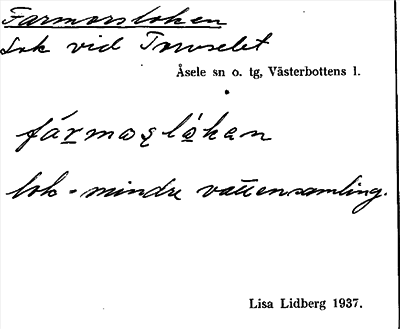 Farmorsloken
Lok vid Truvselet
Åsele sn o. tg, Västerbottens l.
fármoşlòkan
lok = mindre vattensamling.
Lisa Lidberg 1937.